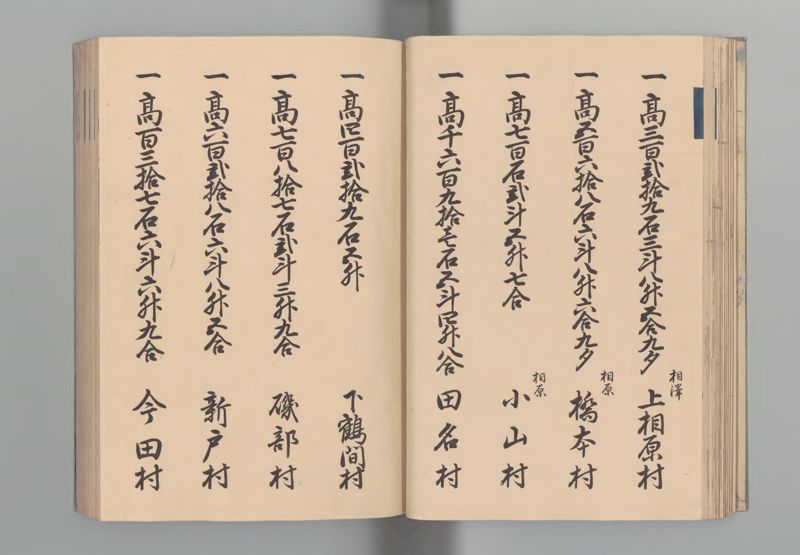 一高三百弐拾九石三斗八升五合九夕 相澤 上相原村
一高五百六拾八石六斗八升六合九夕 相原 橋本村
一高七百石弐斗五升七合 相原 小山村
一高千六百九拾壱石五斗四升八合 田名村
一高四百弐拾九石五升 下鶴間村
一高七百八拾七石弐斗三升九合 磯部村
一高六百弐拾八石六斗八升五合 新戸村
一高百三拾七石六斗六升九合 今田村